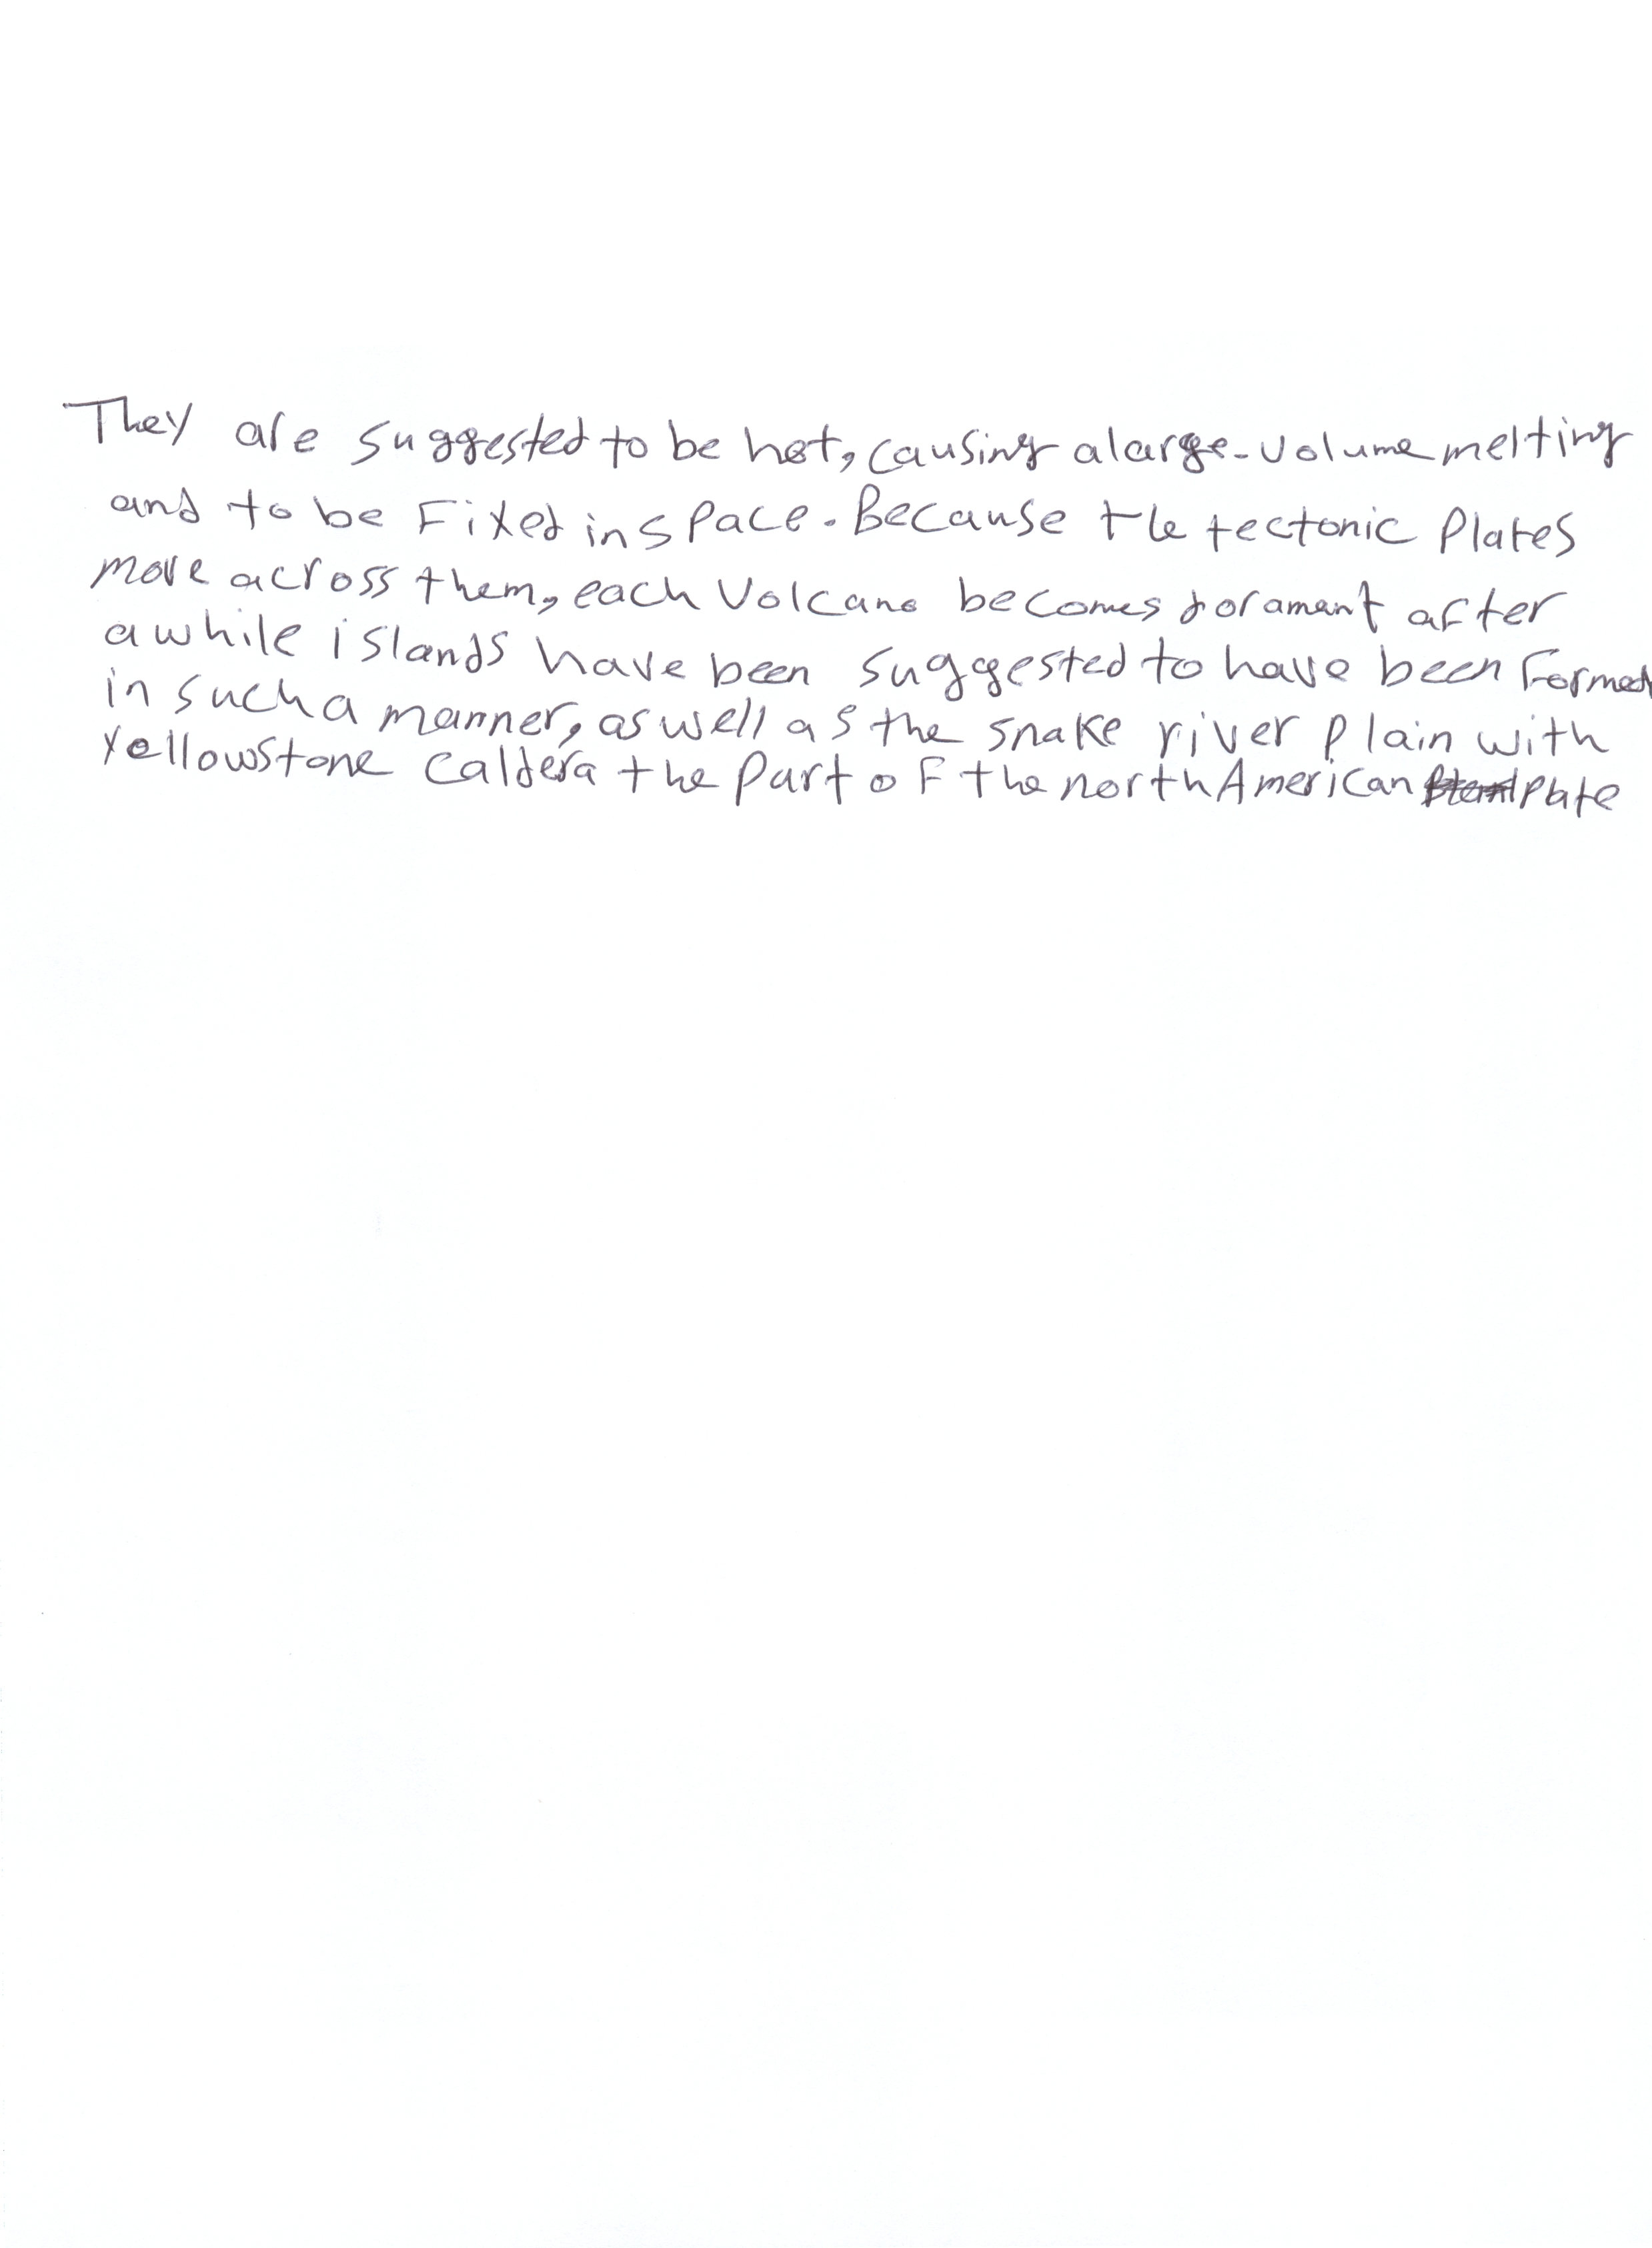 They are suggested to be hot, causing a large-volume melting
and to be Fixed in space. Because the tectonic Plates
move across them, each Volcano becomes doramant after
a while islands have been suggested to have been Formed
in such a manner, as well as the snake river plain with
Yellowstone Caldera the Part of the north American Plate